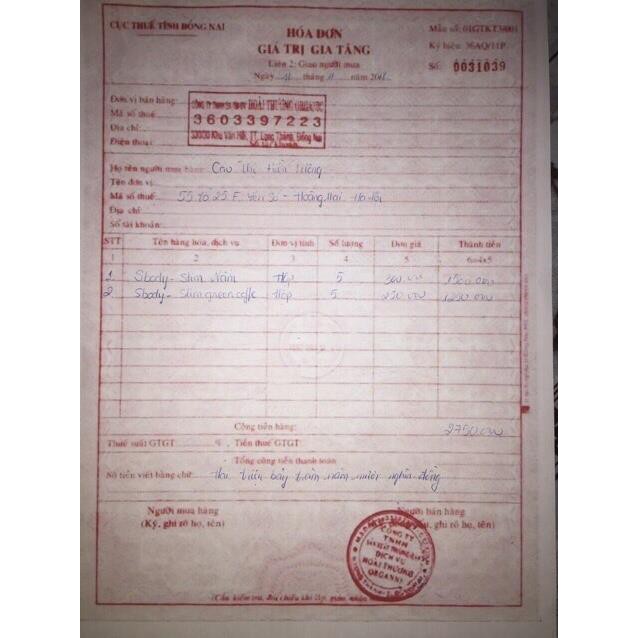 CỤC THUẾ TỈNH ĐỒNG NAI
HÓA ĐƠN
GIÁ TRỊ GIA TĂNG
Liên 2: Giao người mua
Ngày 11 tháng 11 năm
Mẫu số: 01GTKT3/001
Ký hiệu: 36AQ/11P
Số: 0031039
Đơn vị bán hàng:
Mã số thuế:
Địa chỉ:
Điện thoại:
HOÀI THƯƠNG ORGANIC
3603397223
Khu Văn Hải, TT. Long Thành, Đồng Nai
Họ tên người mua hàng: Cao Thị
Tên đơn vị:
Mã số thuế: - Hoàng Mai - Hà Nội
Địa chỉ:
Số tài khoản:
STT Tên hàng hóa, dịch vụ Đơn vị tính Số lượng Đơn giá Thành tiền
1 2 3 4 5 6=4x5
1 Sbody - Slim Nấm Hộp 5 300.000 1500.000
2 Sbody - Slim green coffe Hộp 5 250.000 1250.000
Cộng tiền hàng: 2750.000
Thuế suất GTGT % , Tiền thuế GTGT:
Tổng cộng tiền thanh toán
Số tiền viết bằng chữ: Hai triệu bảy trăm năm mươi nghìn đồng
Người mua hàng
(Ký, ghi rõ họ, tên)
Người bán hàng
(Ký, ghi rõ họ, tên)
CÔNG TY
TNHH
DỊCH VỤ
HOÀI THƯƠNG
ORGANIC
(Cần kiểm tra, đối chiếu khi lập, giao, nhận